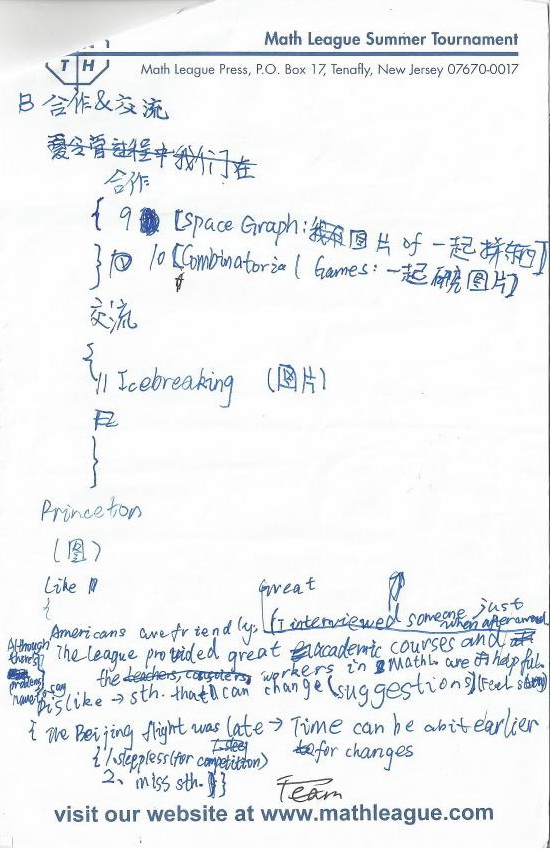 Math League Summer Tournament
T H
Math League Press, P.O. Box 17, Tenafly, New Jersey 07670-0017
B 合作&交流
夏令营过程中我们在
合作
{ 9 [Space Graph: 图片 of 一起拼东西]
} 10 10 [Combinatorial Games: 一起研究图片]
交流
{
11 Icebreaking (图片)
}
Princeton
(图)
Like
{
Great
Americans are friendly. (I interviewed someone just when after award
Although there's problems
The league provided great academic courses and
the teachers, counselers workers in MathL are helpful.
Dislike → sth. that can change (suggestions)
{ The Beijing flight was late → Time can be a bit earlier
for changes
{ 1. sleepless (for competition)
2. miss sth. }}
Team
visit our website at www.mathleague.com